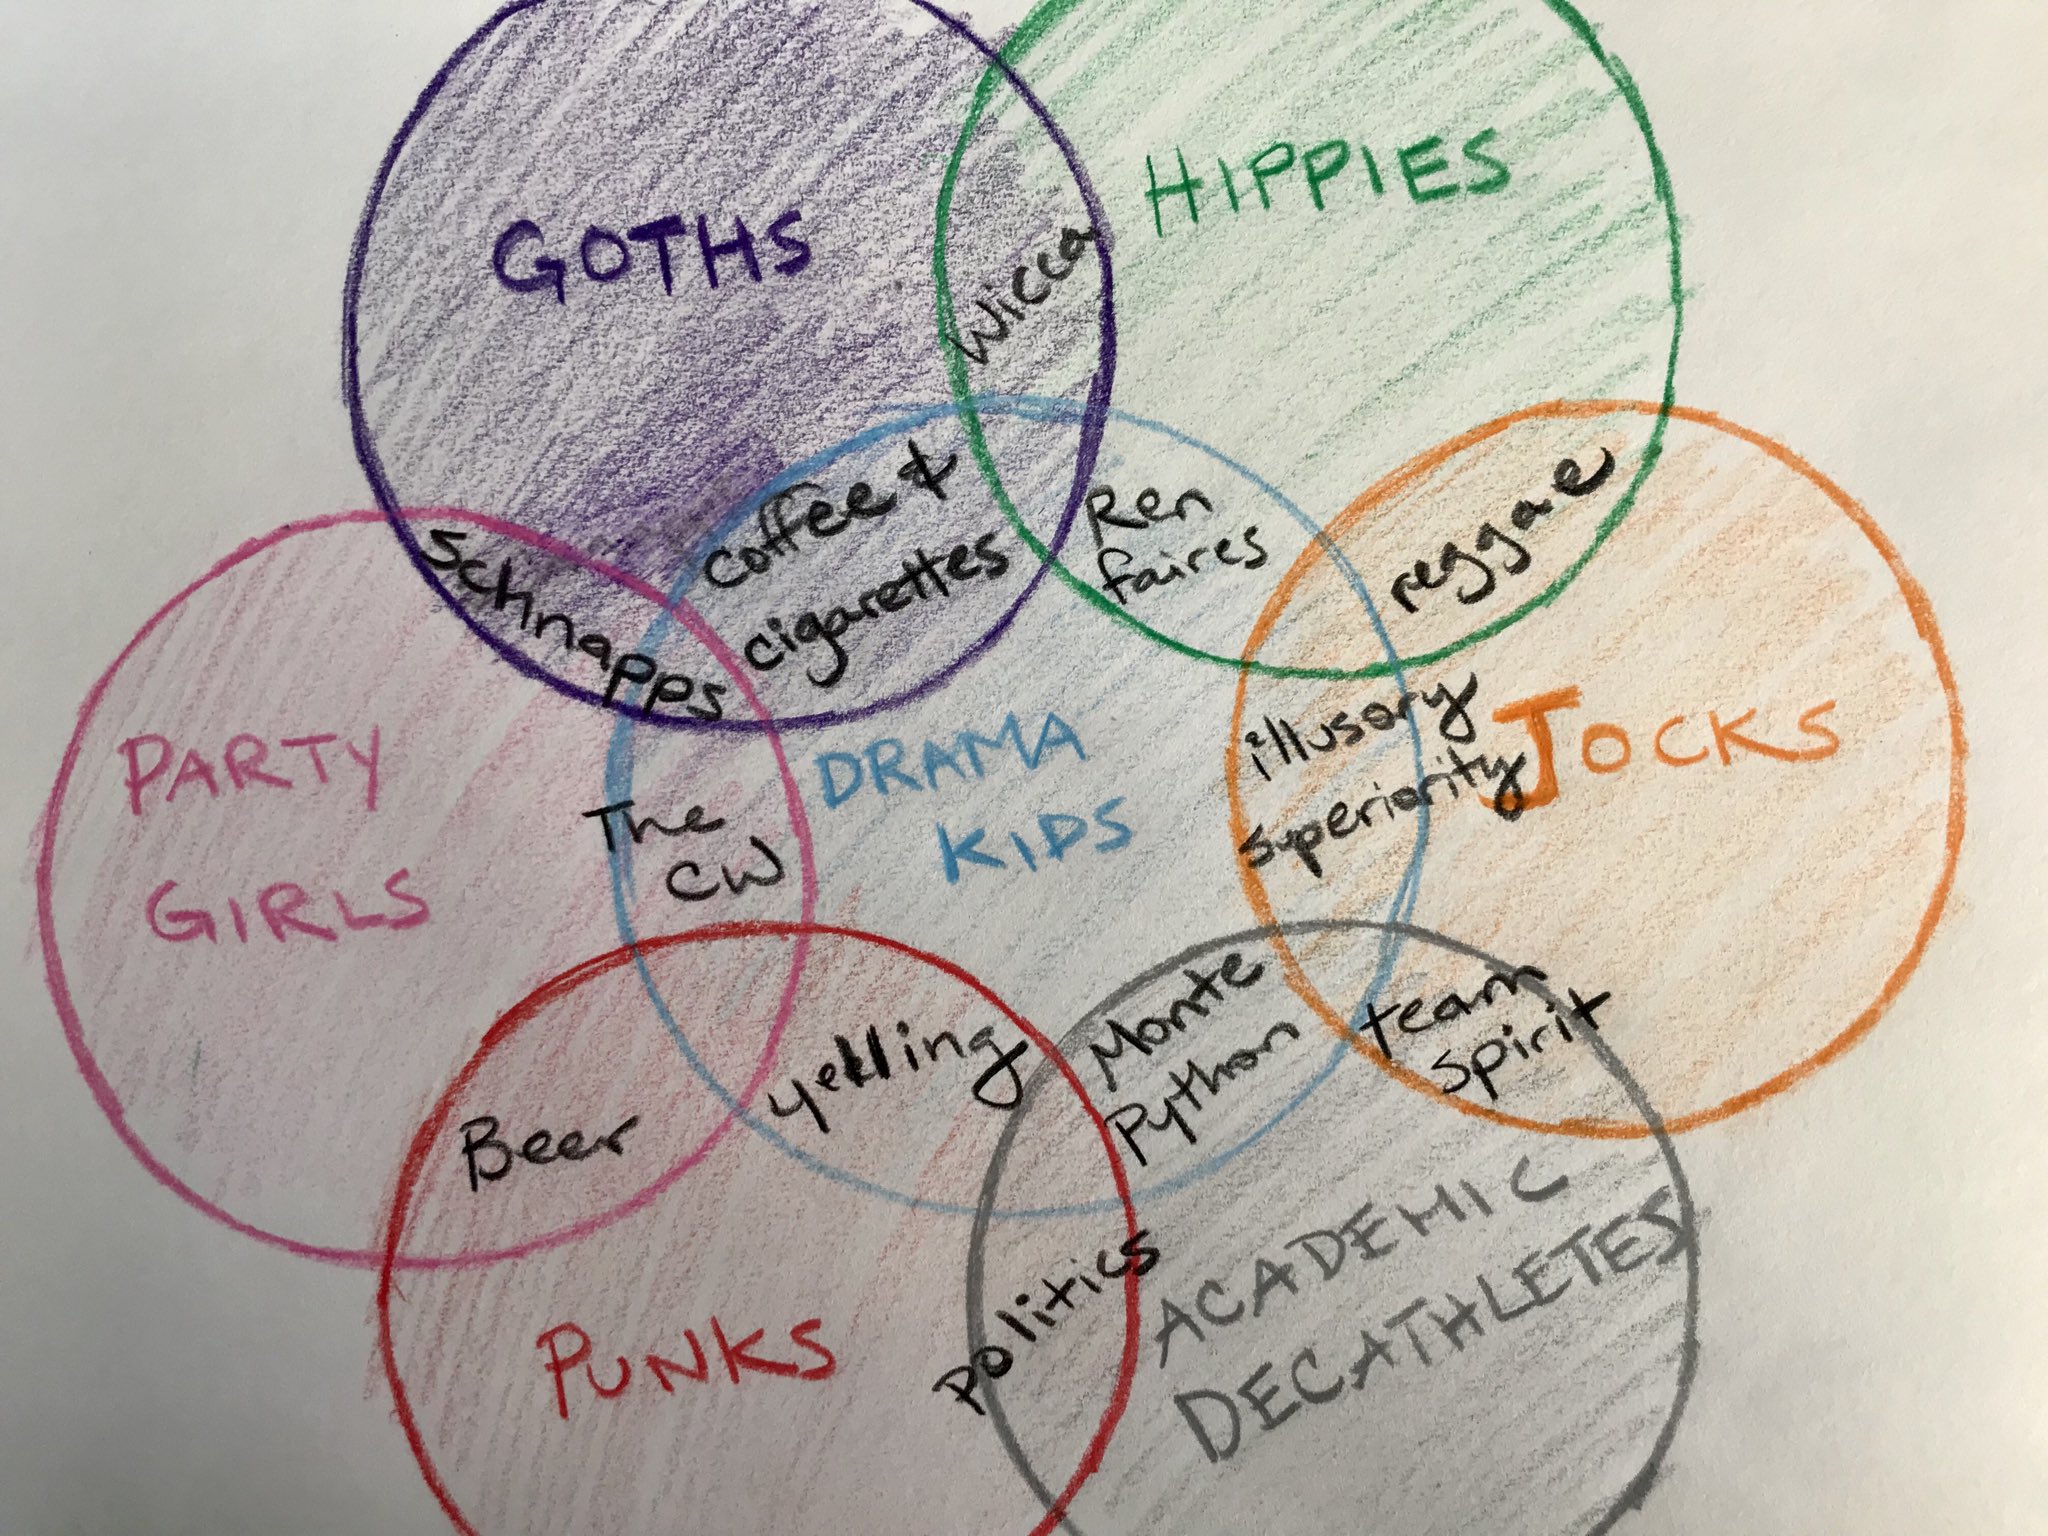 GOTHS
HIPPIES
Wicca
Coffee &
cigarettes
Ren
faires
reggae
Schnapps
PARTY
GIRLS
The
CW
DRAMA
KIDS
illusory
superiority
JOCKS
Beer
yelling
Monte
Python
team
spirit
PUNKS
politics
ACADEMIC
DECATHLETES